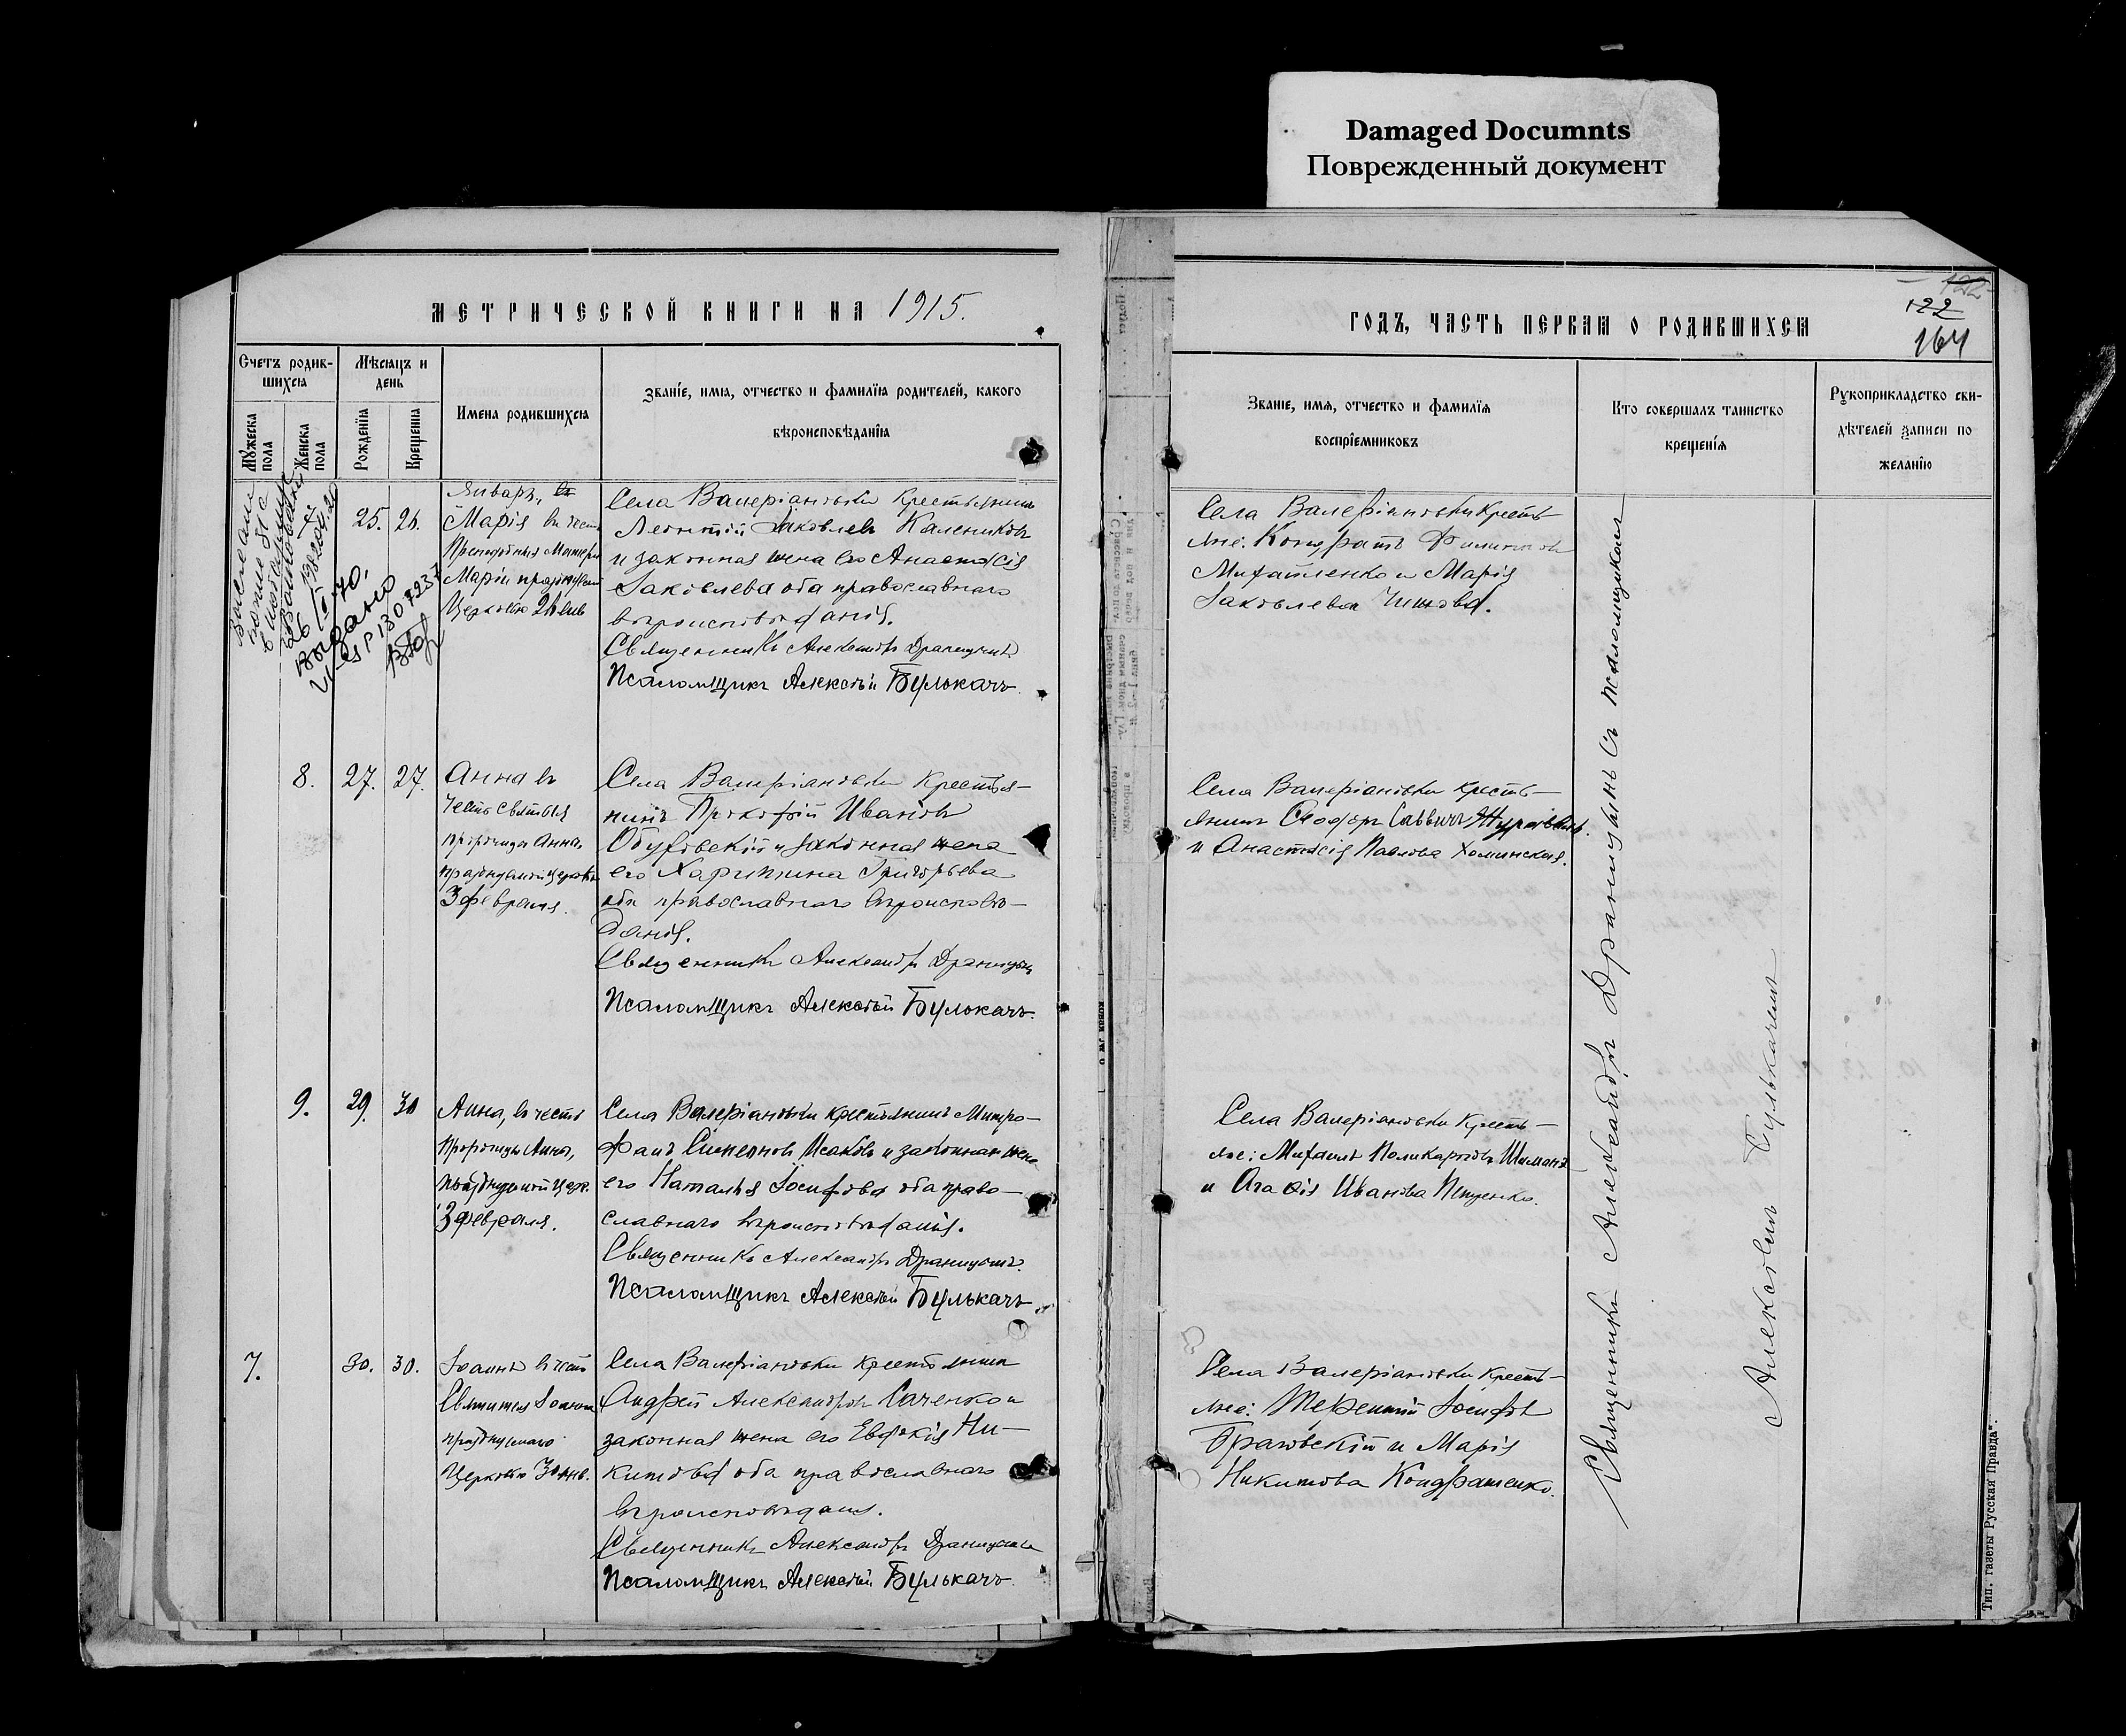 Damaged Documnts
Поврежденный документ
МЕТРИЧЕСКОЙ КНИГИ НА 1915.
Счетъ родив-
шихся
Мѣсяцъ и
день
Имена родившихся
Званіе, имя, отчество и фамилія родителей, какого
вѣроисповѣданія
Мужеска
пола
Женска
пола
Рожденія
Крещенія
25. 26.
Январь,
Марія въ честь
Преподобныя Матери
Маріи празднуемой
Церковью 26 янв
Села Валеріановки крестьянинъ
Леонтій Іаковлевъ Калениковъ
и законная жена его Анастасія
Іаковлева оба православнаго
вѣроисповѣданія.
Священникъ Александръ Драницынъ
Псаломщикъ Алексѣй Булькачъ.
выдано
8. 27. 27.
Анна въ
честь святыя
пророчицы Анны,
празднуемой церковью
3 февраля.
Села Валеріановки крестья-
нинъ Прокофій Ивановъ
Обуховскій и законная жена
его Харитина Григорьева
оба православнаго вѣроисповѣ-
данія.
Священникъ Александръ Драницынъ
Псаломщикъ Алексѣй Булькачъ.
9. 29. 30
Анна, въ честь
Пророчицы Анны,
празднуемой Церк.
3 февраля.
Села Валеріановки крестьянинъ Митро-
фанъ Симеоновъ Исаковъ и законная жена
его Наталія Іосифова оба право-
славнаго вѣроисповѣданія.
Священникъ Александръ Драницынъ.
Псаломщикъ Алексѣй Булькачъ.
7. 30. 30.
Іоаннъ въ честь
Святителя Іоанна
празднуемаго
Церковью 30 янв.
Села Валеріановки крестьянинъ
Андрей Александровъ Саченко и
законная жена его Евдокія Ни-
китова оба православнаго
вѣроисповѣданія.
Священникъ Александръ Драницынъ
Псаломщикъ Алексѣй Булькачъ.
ГОДЪ, ЧАСТЬ ПЕРВАЯ О РОДИВШИХСЯ
122
164
Званіе, имя, отчество и фамилія
воспріемниковъ
Кто совершалъ таинство
крещенія
Рукоприкладство сви-
дѣтелей записи по
желанію
Села Валеріановки кресть-
яне: Кондратъ Филиповъ
Михайленко и Марія
Іаковлева Чижова.
Села Валеріановки кресть-
янинъ Ѳеодоръ Саввичъ
и Анастасія Павлова Хоминская.
Села Валеріановки кресть-
яне: Михаилъ Поликарповъ Шиманъ
и Агаѳія Иванова
Села Валеріановки кресть-
яне: Терентій Іосифовъ
и Марія
Никитова Кондратенко.
Священникъ Александръ Драницынъ съ псаломщикомъ
Алексѣемъ Булькачемъ
Тип. газеты „Русская Правда".